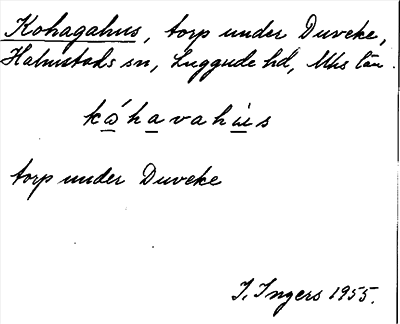 Kohagahus, torp under Duveke,
Halmstads sn, Luggude hd, Mhs län.
kåhavahus
torp under Duveke
I. Ingers 1955.